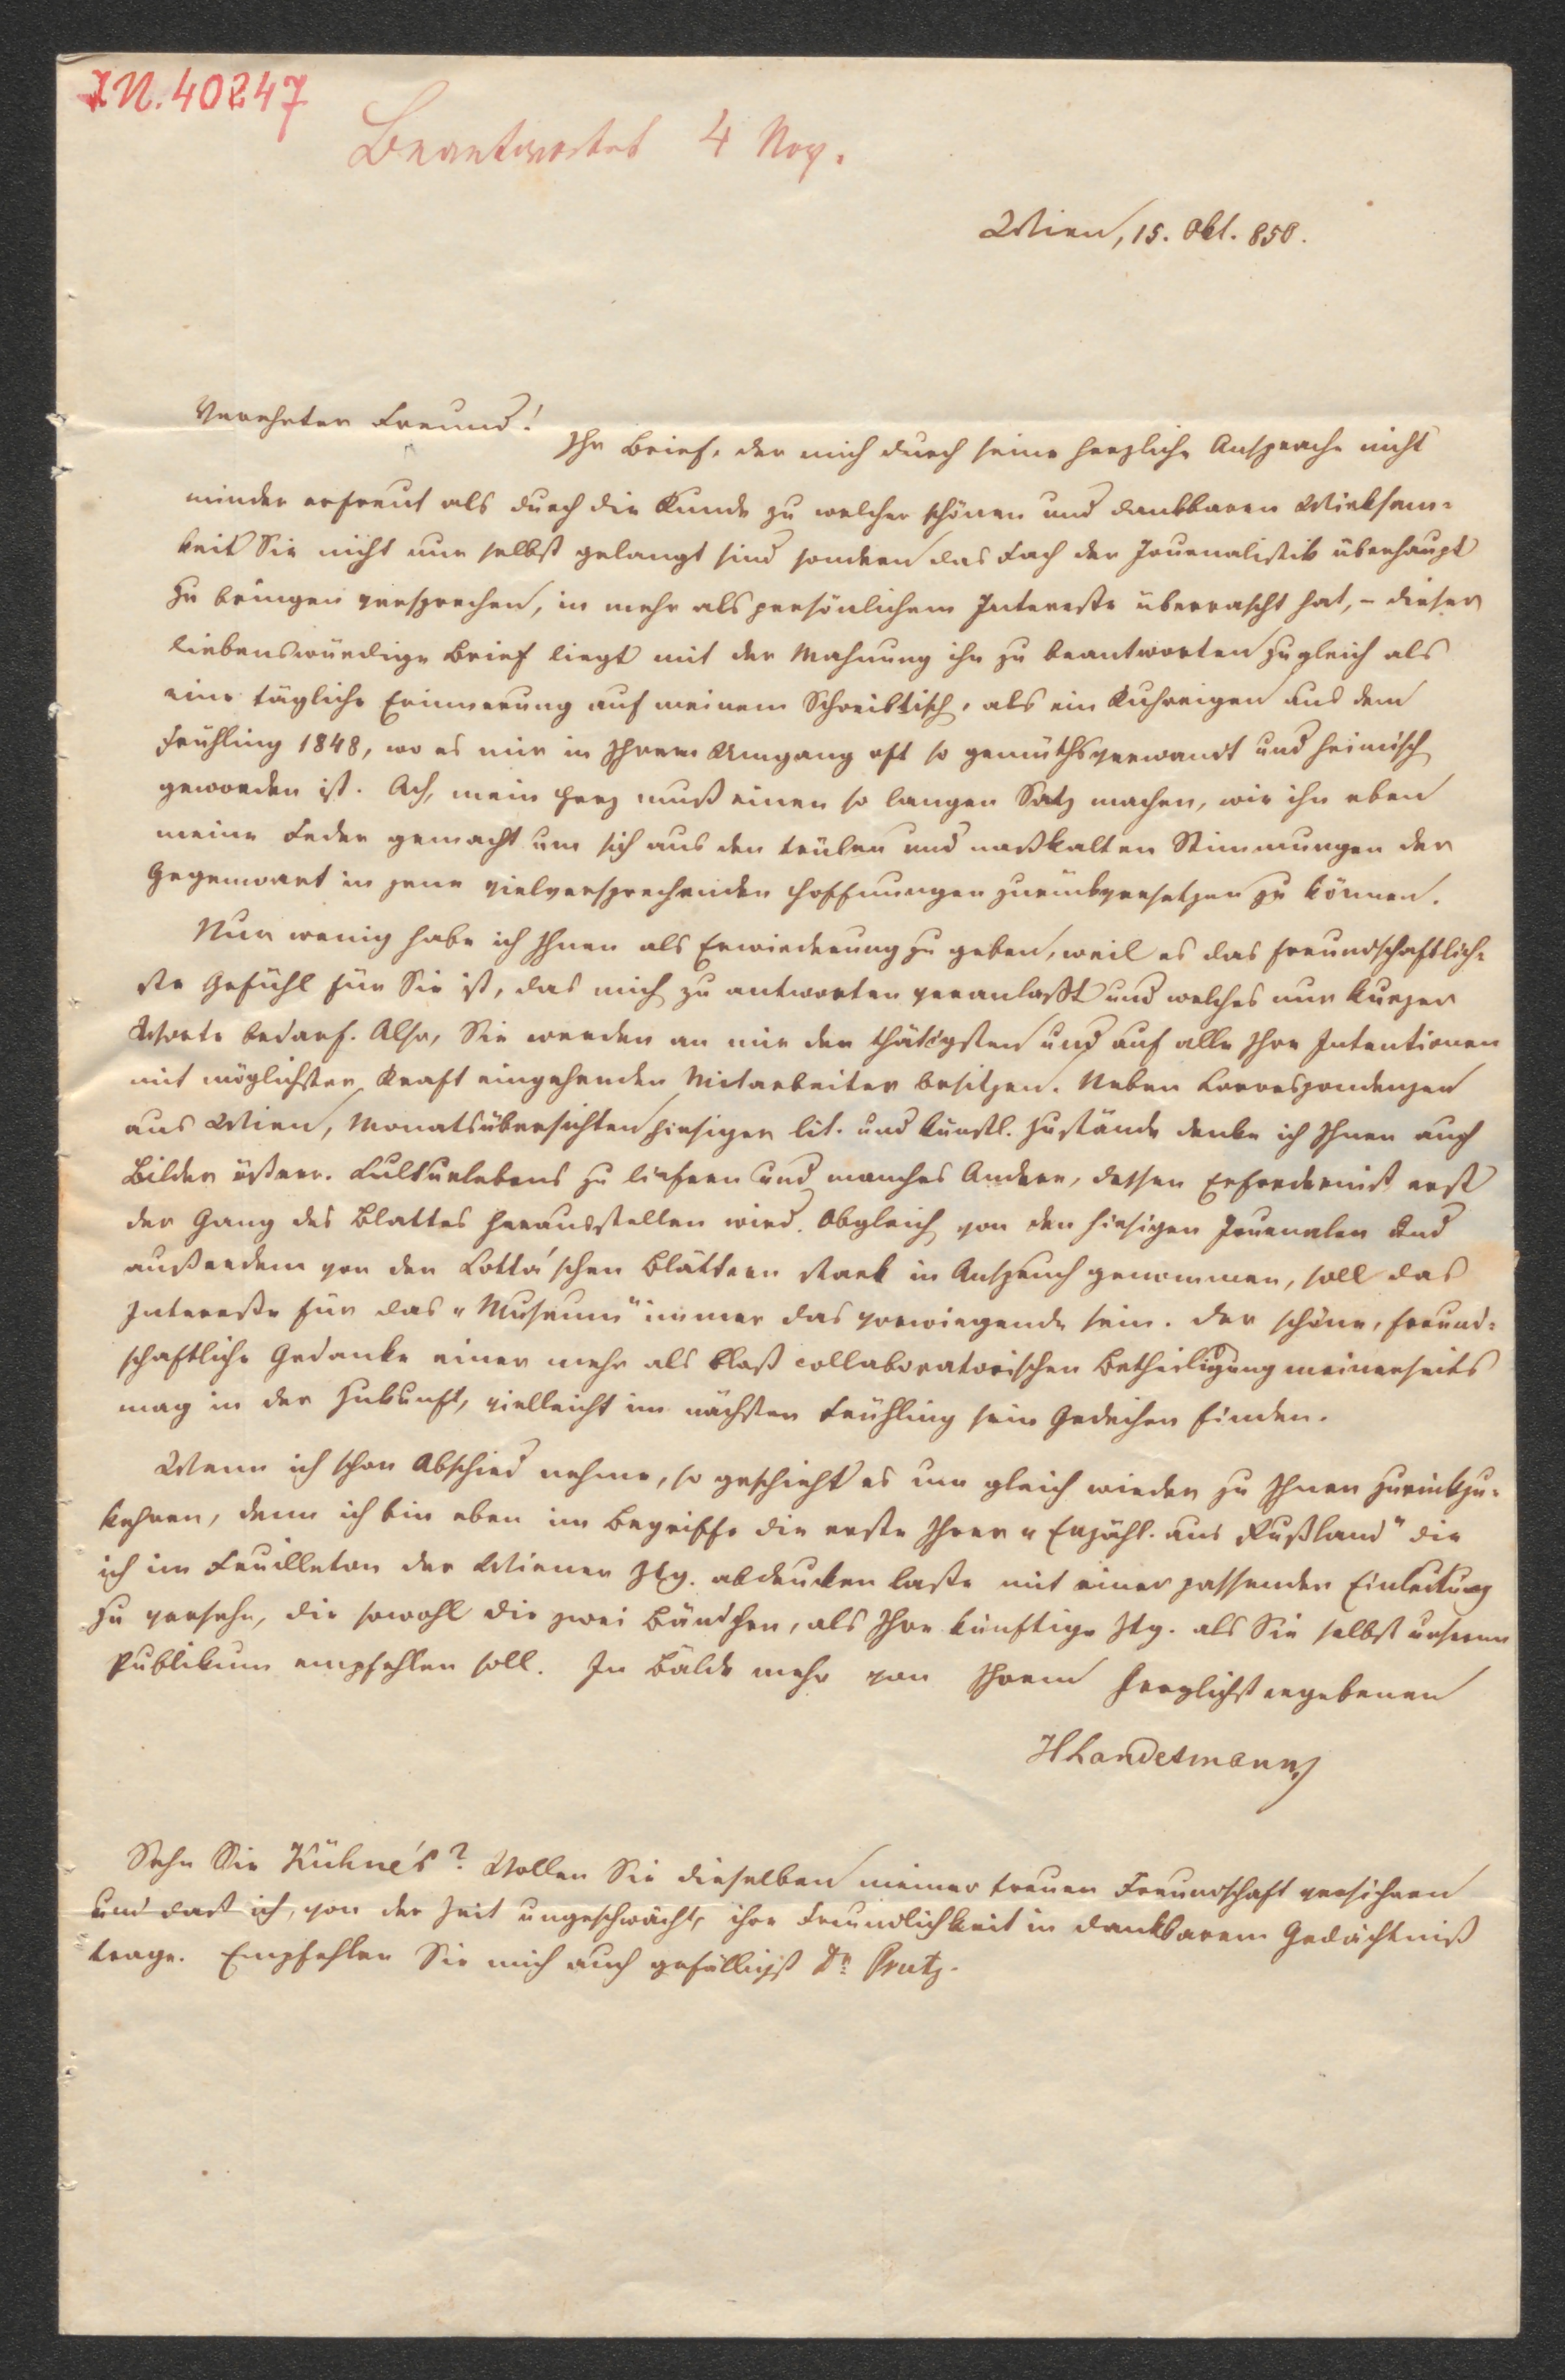 IN. 40247
Beantwortet 4 Nov.
Wien, 15. Okt. 850.
Verehrter Freund!
Ihr Brief, der mich durch seine herzliche Ansprache nicht
minder erfreut als durch die Kunde zu welcher schönen und dankbaren Wirksam-
keit Sie nicht nur selbst gelangt sind sondern das Fach der Journalistik überhaupt
zu bringen versprechen, in mehr als persönlichem Interesse überrascht hat, – dieser
liebenswürdige Brief liegt mit der Mahnung ihn zu beantworten zugleich als
eine tägliche Erinnerung auf meinem Schreibtisch, als ein Kuhreigen aus dem
Frühling 1848, wo es mir in Ihrem Umgang oft so gemüthsverwandt und heimisch
geworden ist. Ach, mein Herz muß einen so langen Satz machen, wie ihn eben
meine Feder gemacht um sich aus den trüben und naßkalten Stimmungen der
Gegenwart in jene vielversprechenden Hoffnungen zurückversetzen zu können.
Nur wenig habe ich Ihnen als Erwiederung zu geben, weil es das freundschaftlich-
ste Gefühl für Sie ist, das mich zu antworten veranlaßt und welches nur kurzer
Worte bedarf. Also, Sie werden an mir den thätigsten und auf alle Ihre Intentionen
mit möglichster Kraft eingehenden Mitarbeiter besitzen. Neben Correspondenzen
aus Wien, Monatsübersichten hiesiger lit. und künstl. Zustände denke ich Ihnen auch
Bilder österr. Culturlebens zu liefern und manches Andere, dessen Erforderniß erst
der Gang des Blattes herausstellen wird. Obgleich von den hiesigen Journalen und
außerdem von den Cotta'schen Blättern stark in Anspruch genommen, soll das
Interesse für das „Museum" immer das vorwiegende sein. Der schöne, freund-
schaftliche Gedanke einer mehr als bloß collaboratorischen Betheiligung meinerseits
mag in der Zukunft, vielleicht im nächsten Frühling sein Gedeihen finden.
Wenn ich schon Abschied nehme, so geschieht es um gleich wieder zu Ihnen zurückzu-
kehren, denn ich bin eben im Begriffe die erste Ihrer „Erzähl. aus Rußland" die
ich im Feuilleton der Wiener Ztg. abdrucken lasse mit einer passenden Einleitung
zu versehn, die sowohl die zwei Bändchen, als Ihre künftige Ztg. als Sie selbst unserem
Publikum empfehlen soll. In Bälde mehr von Ihrem herzlichst ergebenen
HLandesmann
Sehn Sie Kühne's? Wollen Sie dieselben meiner treuen Freundschaft versichern
und daß ich, von der Zeit ungeschwächt, ihre Freundlichkeit in dankbarem Gedächtniß
trage. Empfehlen Sie mich auch gefälligst Dr Prutz.